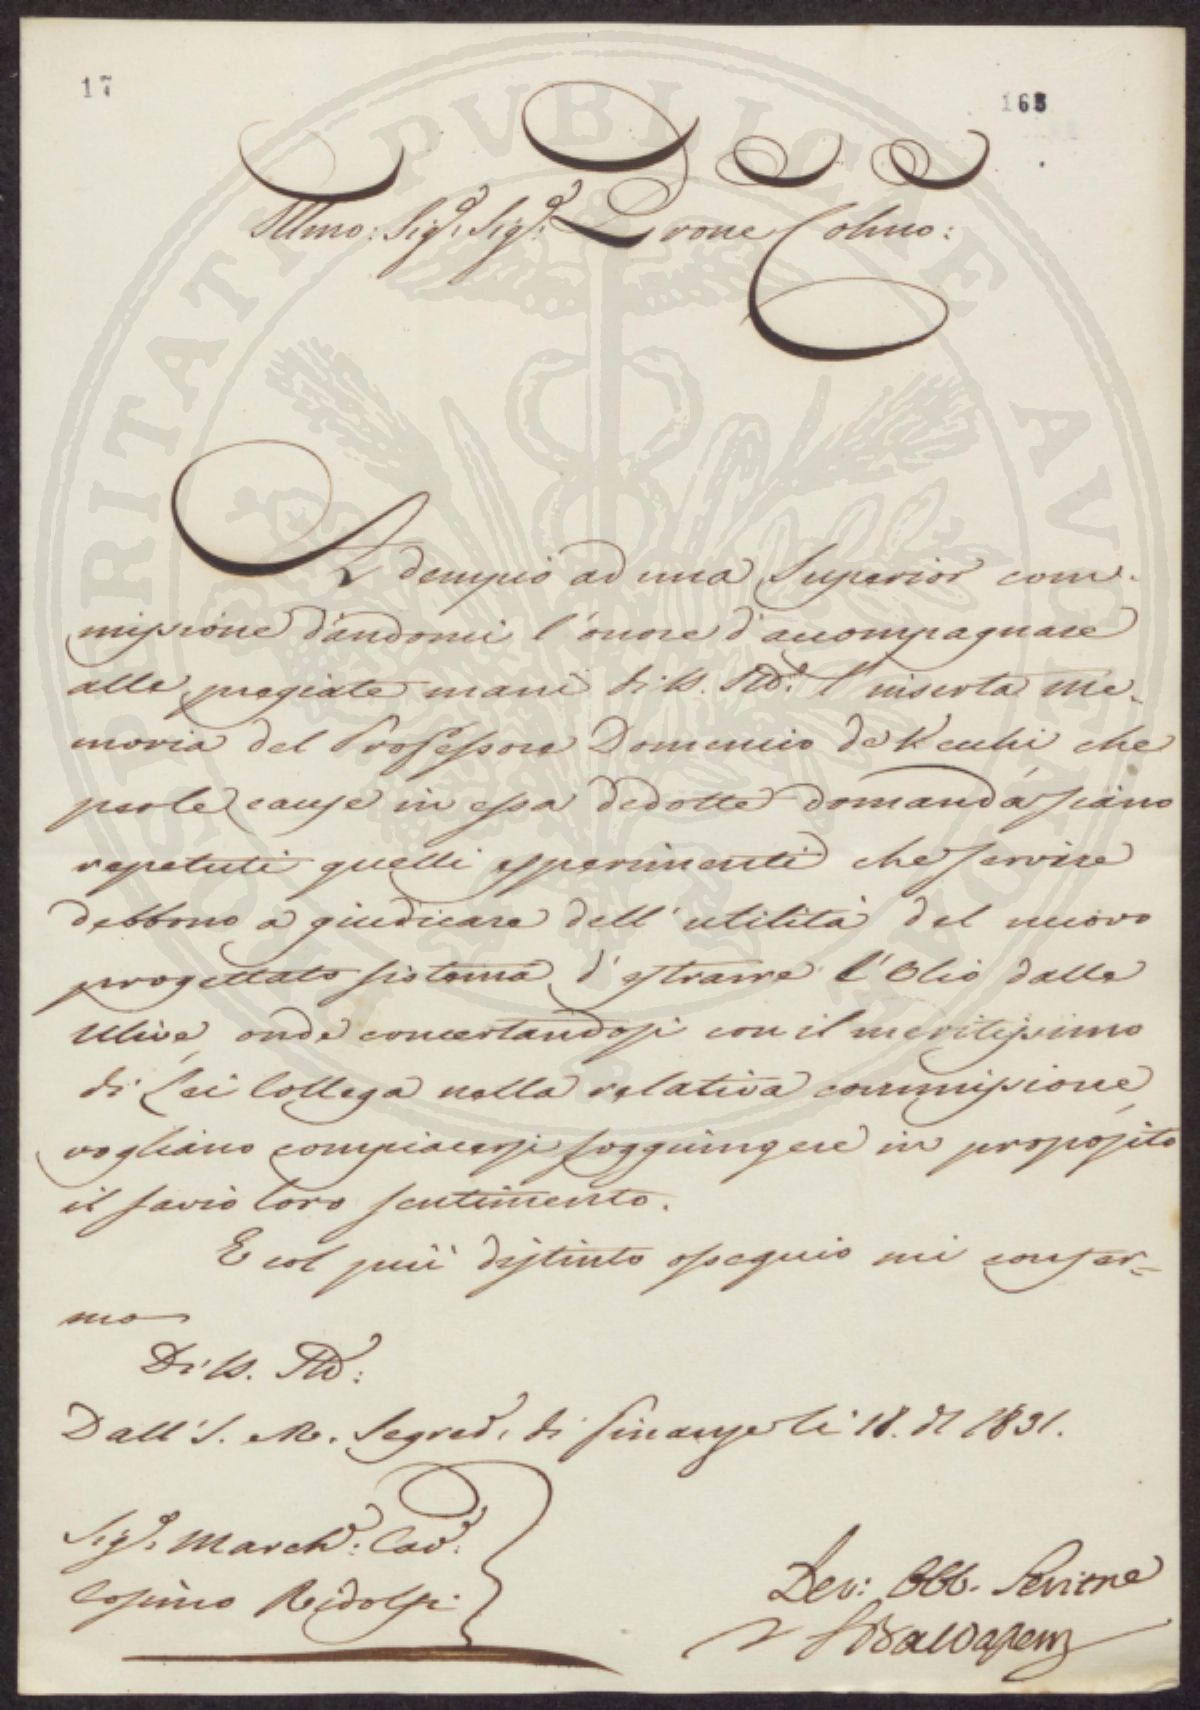 17
165
Illmo: Sig.e Sig.e Prone Colmo:
Adempio ad una Superior com-
missione dandomi l'onore d'accompagnare
alle pregiate mani di V. S. Ill: l'inserta me-
moria del Professore Domenico de Vecchi che
per le cause in essa dedotte domanda siano
repetuti quelli esperimenti che servire
debbono a giudicare dell'utilità del nuovo
progettato sistema d'estrarre l'Olio dalle
Ulive onde concertandosi con il meritissimo
di Lei Collega nella relativa commissione
vogliano compiacersi soggiungere in proposito
il savio loro sentimento.
E col più distinto ossequio mi confer-
mo
Di V. S. Ill:
Dall'I. e R. Segred. di Finanze li 18. 1831.
Sig.e March.e: Cav.e:
Cosimo Ridolfi
Dev: Obb. Servitore
OSPERITATI PUBLICAE AUG